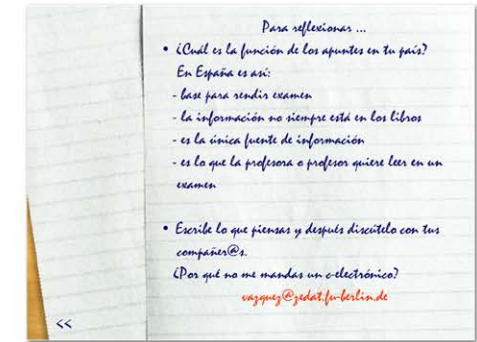 Para reflexionar ...
• ¿Cuál es la función de los apuntes en tu país?
En España es así:
- base para rendir examen
- la información no siempre está en los libros
- es la única fuente de información
- es lo que la profesora o profesor quiere leer en un
examen
• Escribe lo que piensas y después discútelo con tus
compañer@s.
¿Por qué no me mandas un c-electrónico?
vazquez@zedat.fu-berlin.de
<<